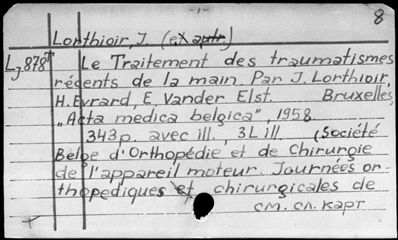 -1-
8
Lorthioir, J. (et aptr.)
Lj878T Le Traitement des traumatismes
récents de la main. Par J. Lorthioir,
H. Evrard, E. Vander Elst. Bruxelles,
„Acta medica belgica", 1958.
343p. avec ill., 3L ill. (Société
Belge d'Orthopédie et de Chirurgie
de l'appareil moteur. Journées or-
thopediques et chirurgicales de
см. сл. карт